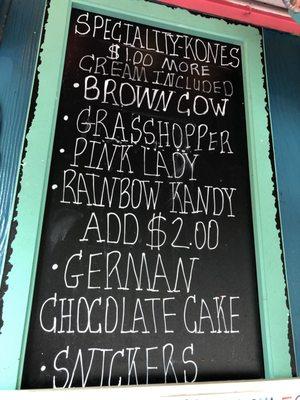 SPECIALITY-KONES
$1.00 MORE
CREAM INCLUDED
• BROWN COW
• GRASSHOPPER
• PINK LADY
• RAINBOW KANDY
ADD $2.00
• GERMAN
CHOCOLATE CAKE
• SNICKERS